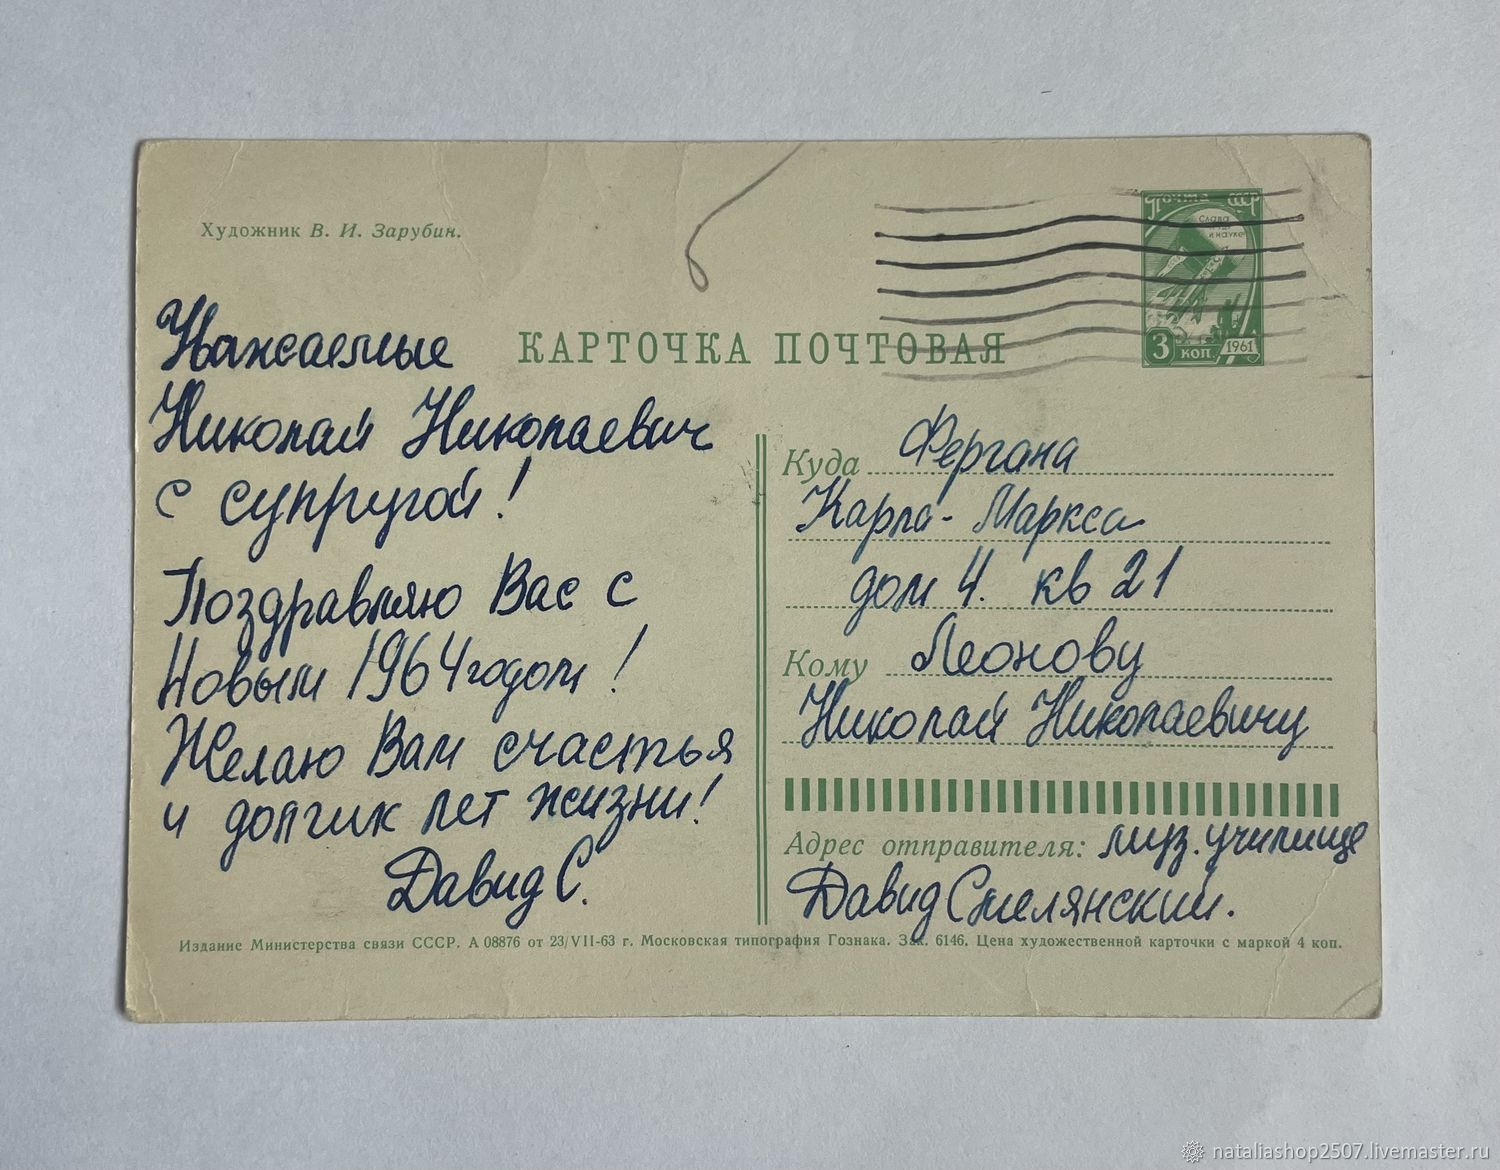 Художник В. И. Зарубин.
Почта СССР
Слава
и науке
3 коп 1961
КАРТОЧКА ПОЧТОВАЯ
Уважаемые
Николай Николаевич
с супругой!
Поздравляю Вас с
Новым 1964 годом!
Желаю Вам счастья
и долгих лет жизни!
Давид С.
Куда Фергана
Карла-Маркса
дом 4. кв 21
Кому Леонову
Николай Николаевичу
Адрес отправителя: муз. училище
Давид Смелянский.
Издание Министерства связи СССР. А 08876 от 23/VII-63 г. Московская типография Гознака. Зак. 6146. Цена художественной карточки с маркой 4 коп.
nataliashop2507.livemaster.ru